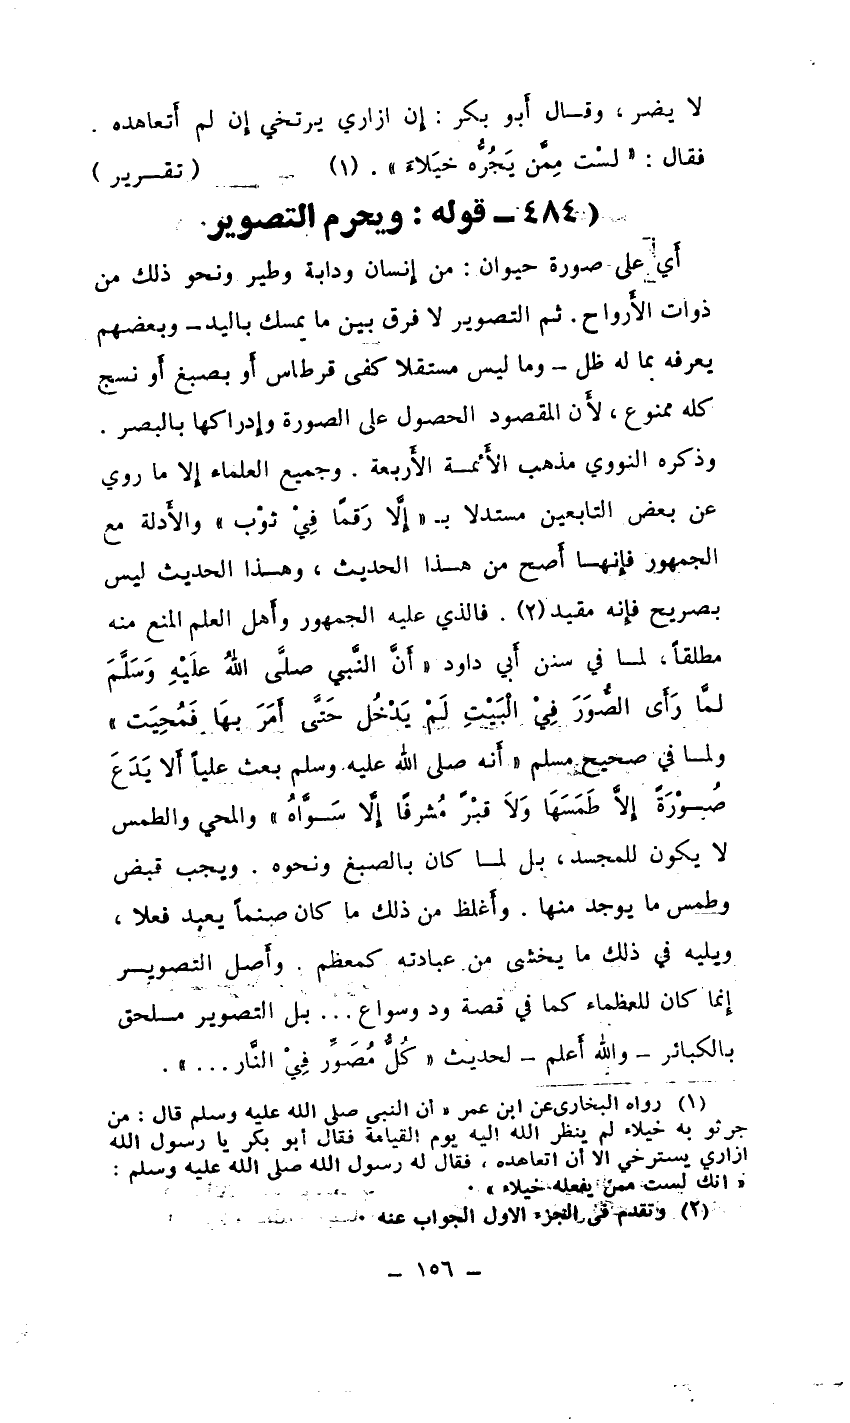 لا يضر ، وقـال أبو بكر : إن ازاري يرتخي إن لم أتعاهده .
فقال : « لسْت مِمَّن يَجُرُّه خيَلاءَ » . (١) ( تقـرير )
( ٤٨٤ ـ قوله : ويحرم التصوير .
أي على صورة حيوان : من إنسان ودابة وطير ونحو ذلك من
ذوات الأرواح . ثم التصوير لا فرق بين ما يمسك باليد – وبعضهم
يعرفه بما له ظل – وما ليس مستقلا كفى قرطاس أو بصبغ أو نسج
كله ممنوع ، لأن المقصود الحصول على الصورة وإدراكها بالبصر .
وذكره النووي مذهب الأئمـة الأربعة . وجميع العلماء إلا ما روي
عن بعض التابعين مستدلا بـ « إِلَّا رَقمًا فِيْ ثوْب » والأدلة مع
الجمهور فإنهـا أصح من هـذا الحديث ، وهـذا الحديث ليس
بصريح فإنه مقيد (٢) . فالذي عليه الجمهور وأهل العلم المنع منه
مطلقاً ، لمـا في سنن أبي داود « أَنَّ النَّبي صلَّى اللهُ علَيْهِ وَسَلَّمَ
لـمَّا رَأى الصُّوَرَ فِيْ الْبَيْتِ لَمْ يَدْخُل حَتَّى أَمَرَ بـهَا فَمُحِيَت »
ولمـا في صحيح مسلم « أنه صلى الله عليه وسلم بعث علياً ألا يَدَعَ
صُـوْرَةً إلاَّ طَمَسَهَا وَلاَ قبْرً مُشرفًا إلَّا سَـوَّاهُ » والمحي والطمس
لا يكون للمجسد ، بل لمـا كان بالصبغ ونحوه . ويجب قبض
وطمس ما يوجد منها . وأغلظ من ذلك ما كان صنماً يعبد فعلا ،
ويليه في ذلك ما يخشى من عبادته كمعظم . وأصل التصويـر
إنما كان للعظماء كما في قصة ود وسواع ... بـل التصوير مـلحق
بالكبائر – والله أعلم – لحديث « كُلُّ مُصَوِّر فِيْ النَّار ... » .
(١) رواه البخارى عن ابن عمر « أن النبي صلى الله عليه وسلم قال : من
جر ثوبه خيلاء لم ينظر الله اليه يوم القيامة فقال أبو بكر يا رسول الله
ازاري يسترخي الا أن اتعاهده ، فقال له رسول الله صلى الله عليه وسلم :
« انك لست ممن يفعله خيلاء » .
(٢) وتقدم في الجزء الاول الجواب عنه .
– ١٥٦ –